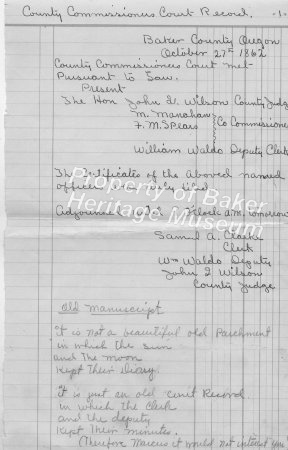 County Commissioners Court Record. -1-
Baker County Oregon
October 27th 1862
County Commissioners Court met
Pursuant to Law.
Present
The Hon John Q. Wilson County Judge
M. Manahan
F. M. Spears
Co Commissioners
William Waldo Deputy Clerk
The Certificates of the aboved named
officers were duly filed
Adjourned O'Clock A.M. tomorrow
Samuel A. Clarke
Clerk
Wm Waldo Deputy
John Q Wilson
County Judge
Old Manuscript
it is not a beautiful old Parchment
in which the sun
and the moon
kept their Diary.
it is just an old court Record
in which the Clerk
and the deputy
Kept Their minutes.
(Therefore Marcus it would not interest you)
Property of Baker
Heritage Museum